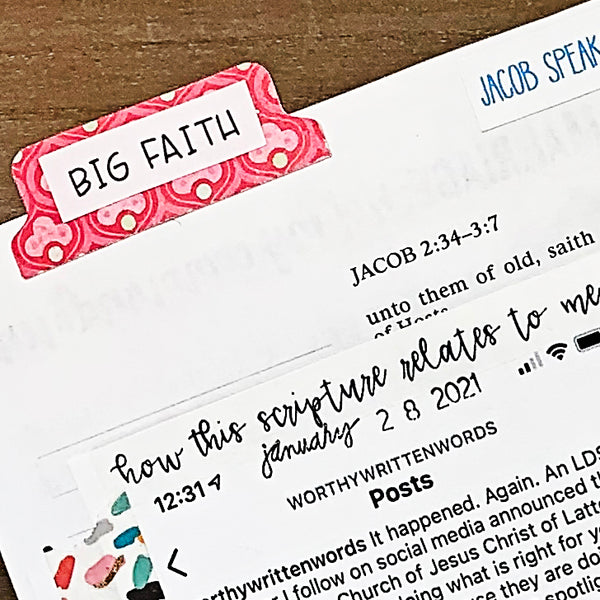 BIG FAITH
JACOB SPEAK
JACOB 2:34–3:7
unto them of old, saith
of Hosts
how this scripture relates to me
january 28 2021
12:31
WORTHYWRITTENWORDS
Posts
worthywrittenwords It happened. Again. An LDS
I follow on social media announced th
Church of Jesus Christ of Latte
doing what is right for yo
se they are doi
spotlig